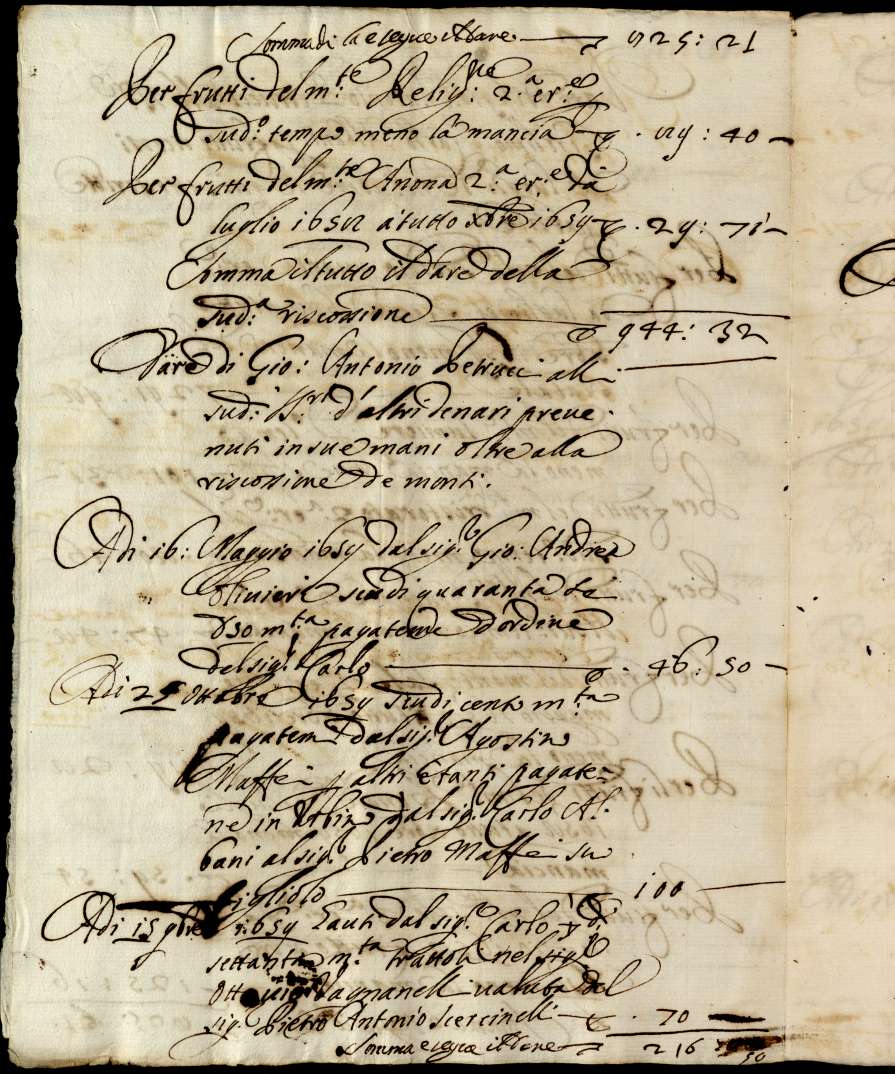 Somma di là e segue il dare — 825: 21
Per frutti del m.te Relig.ne 2.a er.e
sud.o tempo meno la mancia — 89: 40 —
Per frutti del m.te Anona 2.a er.e da
luglio 1658 a tutto xbre 1659 29: 71 —
Somma il tutto il dare della
sud.a riscossione — 944: 32
Dare di Gio: Antonio Petrucci alli
sud.i SS.ri d'altri denari preve
nuti in sue mani oltre alla
riscossione de monti.
Adi 16: Maggio 1659 dal sig.r Gio: Andrea
Olivieri scudi quaranta sei
50 m.ta pagateme d'ordine
del sig.r Carlo — 46: 50 —
Adi 25 Ottobre 1659 scudi cento m.ta
pagatemi dal sig.r Agostino
Maffei p altri etanti pagate=
ne in Urbino dal sig.r Carlo Al=
bani al sig.r Pietro Maffei su
figliolo — 100 —
Adi 15 9bre 1659 hauti dal sig.r Carlo
settanta m.ta nel sig.r
Ottavio valuta del
sig. Pietro Antonio — 70 —
Somma e segue il dare — 216 50